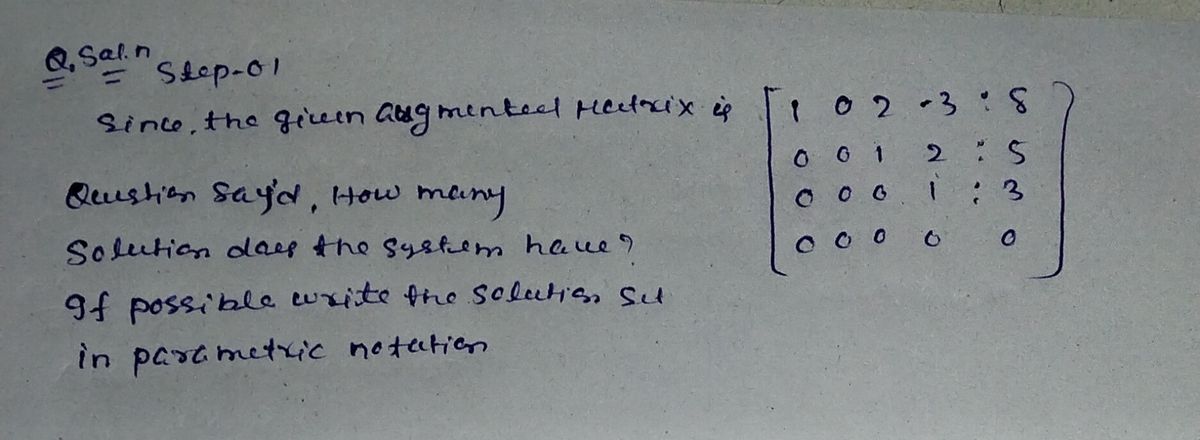 Q. Sol.n Step-01
Since, the given augmented Matrix is
[ 1 0 2 -3 : 8 ]
[ 0 0 1 2 : 5 ]
[ 0 0 0 1 : 3 ]
[ 0 0 0 0 0 ]
Question Say'd, How many
Solution does the system have?
If possible write the solution set
in parametric notation